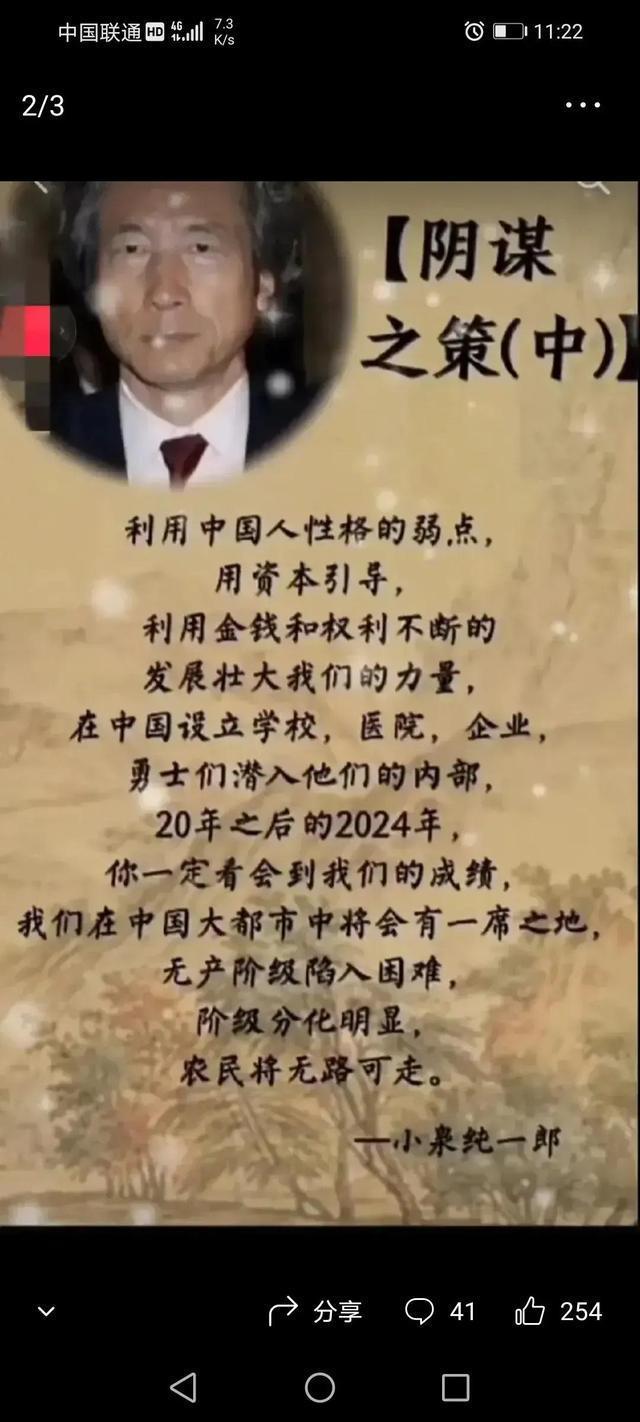 中国联通 HD 4G 7.3 K/s 11:22
2/3
【阴谋
之策(中)】
利用中国人性格的弱点，
用资本引导，
利用金钱和权利不断的
发展壮大我们的力量，
在中国设立学校，医院，企业，
勇士们潜入他们的内部，
20年之后的2024年，
你一定看会到我们的成绩，
我们在中国大都市中将会有一席之地，
无产阶级陷入困难，
阶级分化明显，
农民将无路可走。
—小泉纯一郎
分享 41 254